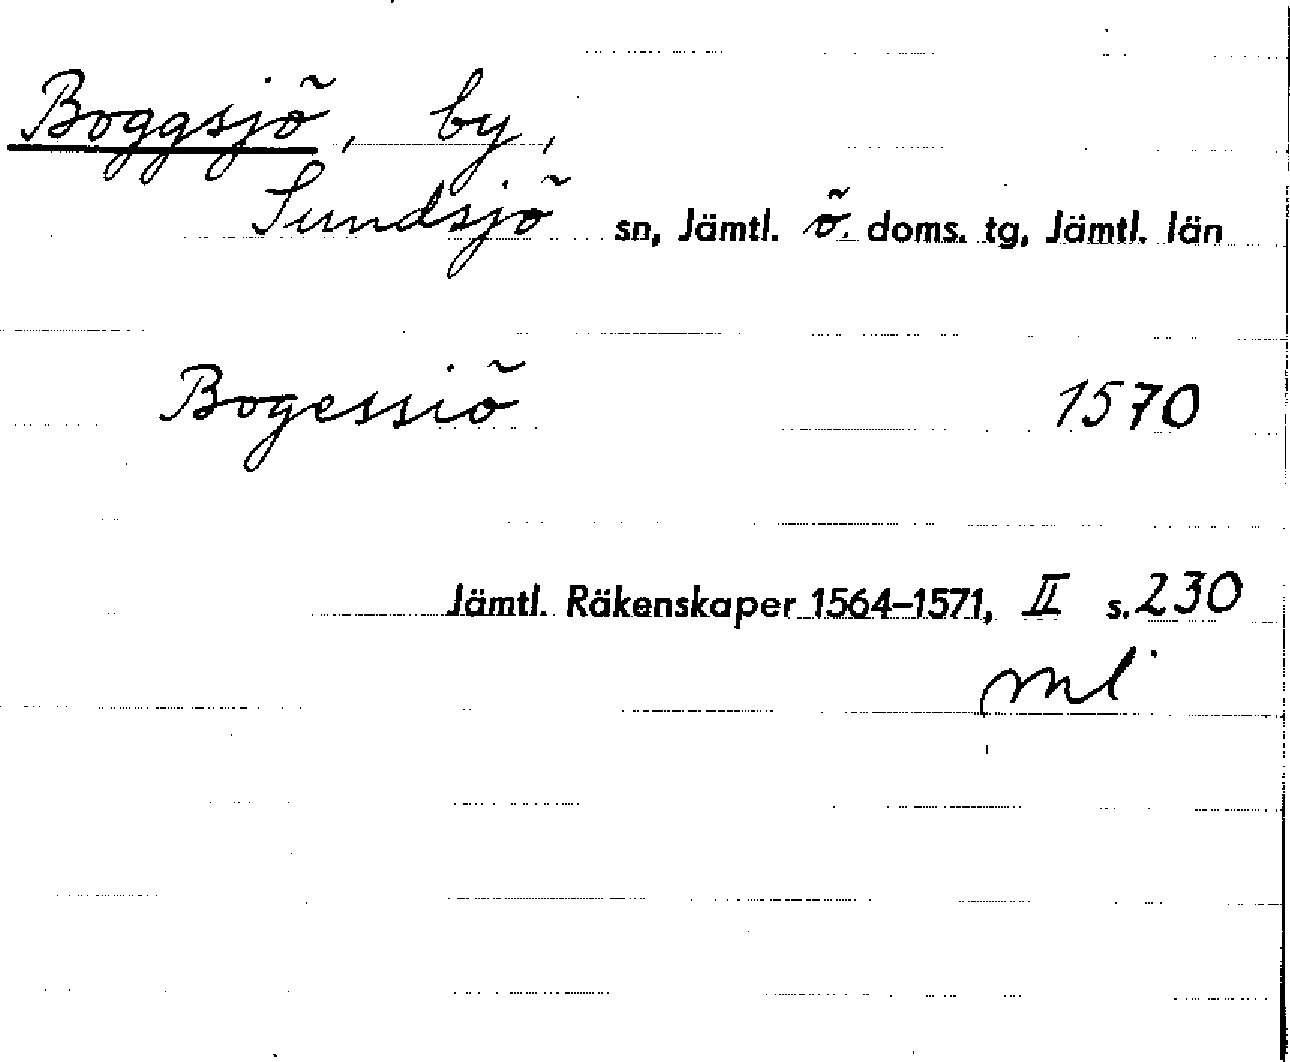 Boggsjö, by,
Sundsjö sn, Jämtl. ö. doms. tg, Jämtl. län
Bogessiö 1570
Jämtl. Räkenskaper 1564–1571, II s. 230